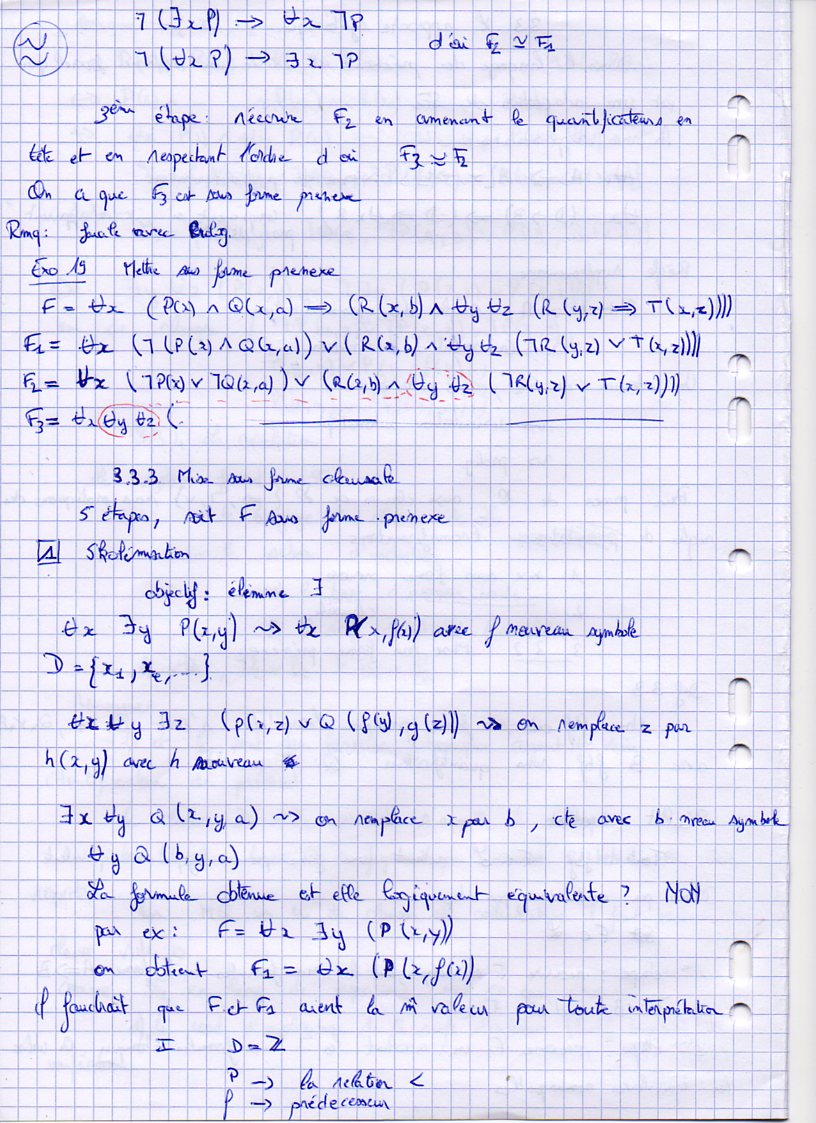 ⌐(∃x P) → ∀x ⌐P
⌐(∀x P) → ∃x ⌐P d'où F2 ≃ F1
3ème étape : réécrire F2 en amenant le quantificateurs en
tête et en respectant l'ordre d'où F3 ≃ F2
On a que F3 est sous forme prenexe
Rmq : facile avec
Exo 19 Mettre sous forme prenexe
F = ∀x (P(x) ∧ Q(x,a) ⟹ (R(x,b) ∧ ∀y ∀z (R(y,z) ⟹ T(x,z))))
F1 = ∀x (⌐(P(x) ∧ Q(x,a)) ∨ (R(x,b) ∧ ∀y ∀z (⌐R(y,z) ∨ T(x,z))))
F2 = ∀x (⌐P(x) ∨ ⌐Q(x,a)) ∨ (R(x,b) ∧ ∀y ∀z (⌐R(y,z) ∨ T(x,z))))
F3 = ∀x ∀y ∀z (
3.3.3 Mise sous forme clausale
5 étapes, soit F sous forme prenexe
1 Skolémisation
objectif : élémine ∃
∀x ∃y P(x,y) ⇝ ∀x P(x,f(x)) avec f nouveau symbole
D = {x1, x2, ....}
∀x ∀y ∃z (p(x,z) ∨ Q(f(y),g(z))) ⇝ on remplace z par
h(x,y) avec h nouveau
∃x ∀y Q(x,y,a) ⇝ on remplace x par b, cte avec b nveau symbole
∀y Q(b,y,a)
La formule obtenue est elle logiquement équivalente ? NON
par ex : F = ∀x ∃y (P(x,y))
on obtient F1 = ∀x (P(x,f(x))
il faudrait que F et F1 aient la m̂ valeur pour toute interprétation
I D = ℤ
P → la relation <
f → prédecesseur